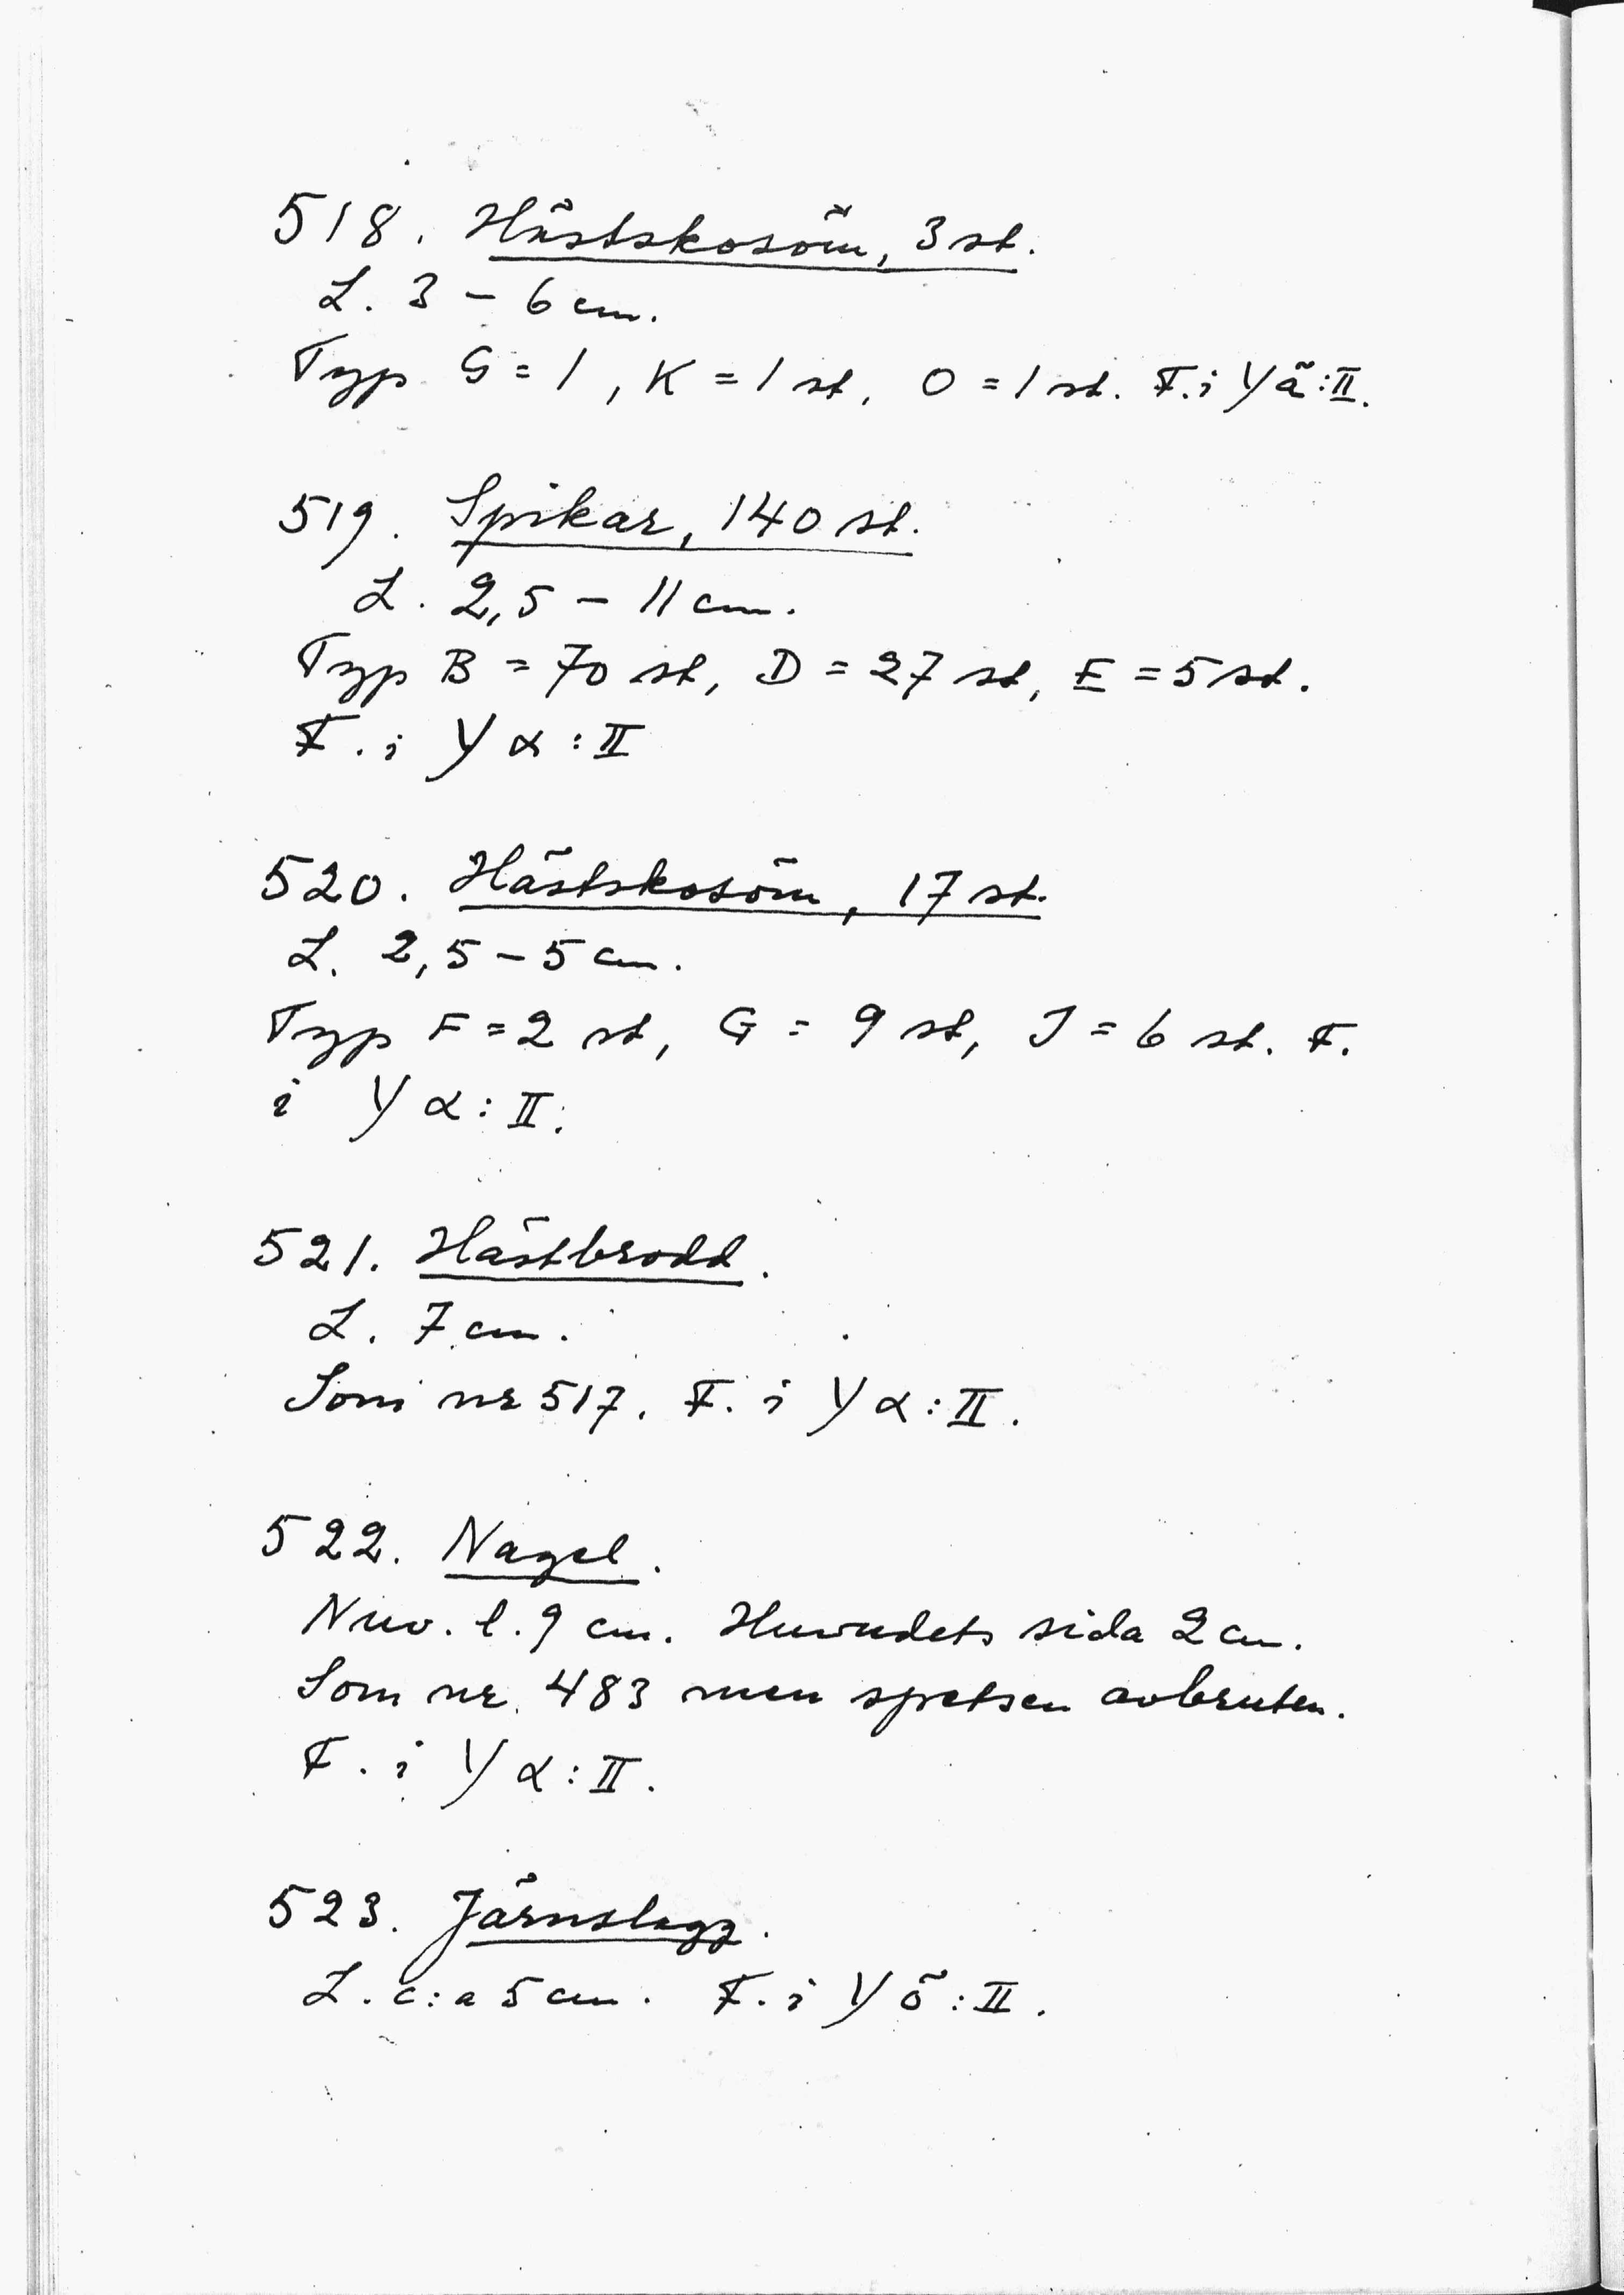 518. Hästskosöm, 3 st.
L. 3 – 6 cm.
Typ G = 1, K = 1 st, O = 1 st. F. i Y ä : II.
519. Spikar, 140 st.
L. 2,5 – 11 cm.
Typ B = 70 st, D = 27 st, E = 5 st.
F. i Y α : II
520. Hästskosöm, 17 st.
L. 2,5 – 5 cm.
Typ F = 2 st, G = 9 st, J = 6 st. F.
i Y α : II.
521. Hästbrodd.
L. 7 cm.
Som nr 517. F. i Y α : II.
522. Nagel.
Nuv. l. 9 cm. Huvudets sida 2 cm.
Som nr. 483 men spetsen avbruten.
F. i Y α : II.
523. Järnslagg.
L. c:a 5 cm. F. i Y ö : II.